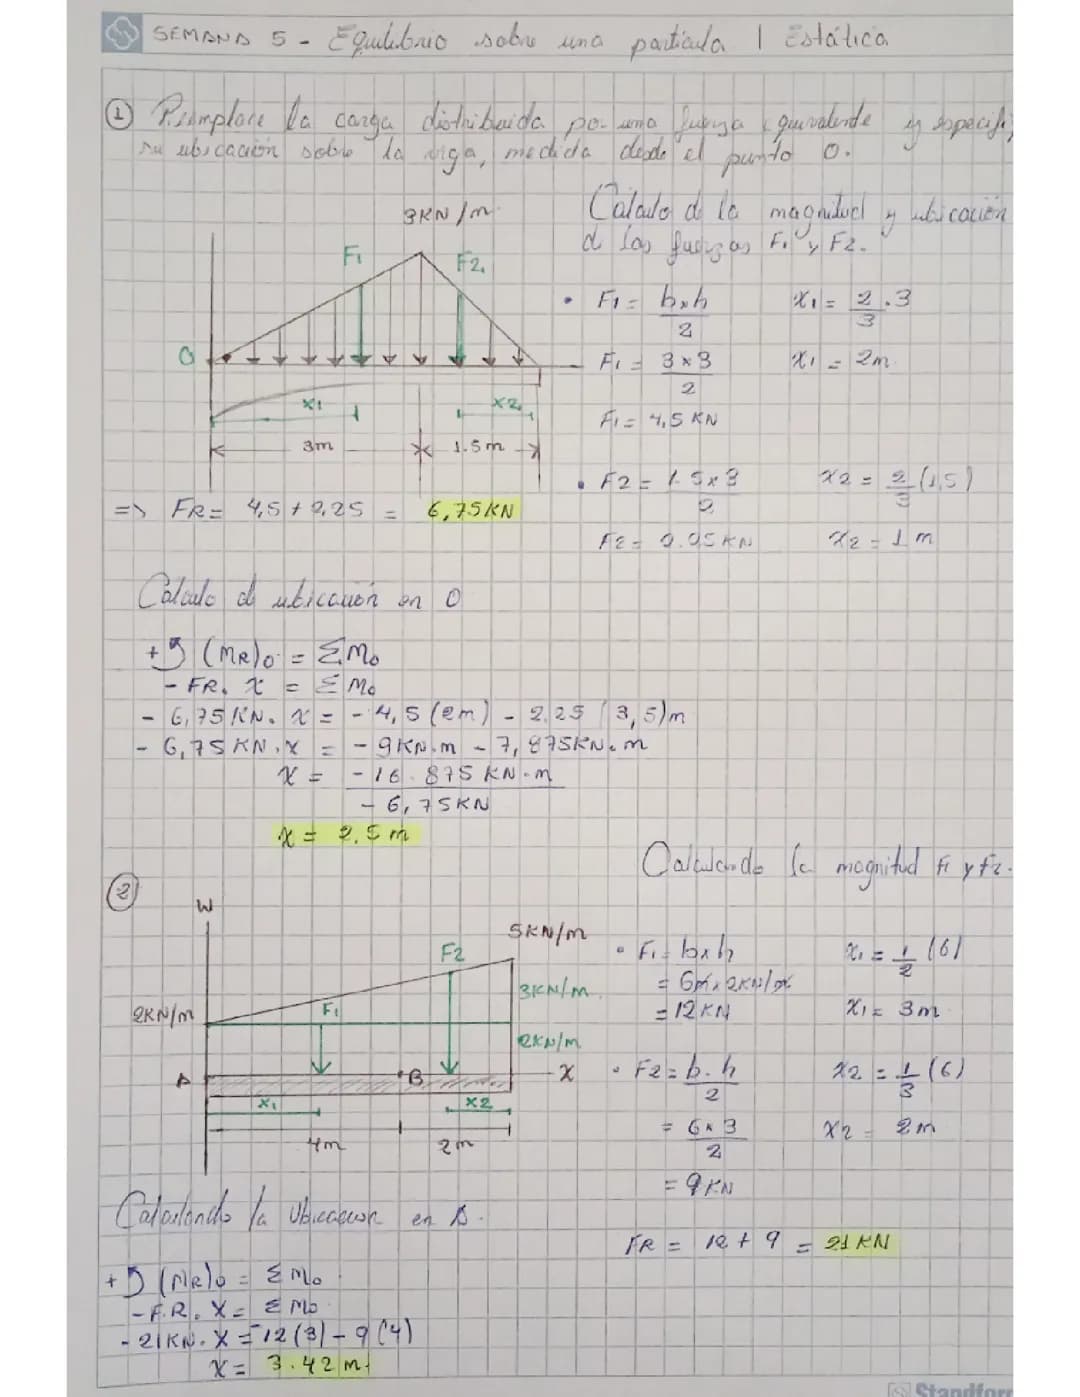 SEMANA 5 - Equilibrio sobre una particula | Estática
① Reemplace la carga distribuida por una fuerza equivalente y especifi
su ubicación sobre la viga, medida desde el punto O.
Calculo de la magnitud y ubicación
de las fuerzas F1 y F2.
3KN/m
F1
F2
O
x1
x2
3m
1.5m
• F1 = bxh / 2
x1 = 2/3 . 3
F1 = 3x3 / 2
x1 = 2m
F1 = 4,5 KN
• F2 = 1.5x3 / 2
x2 = 2/3 (1,5)
F2 = 2.25 KN
x2 = 1m
=> FR = 4,5 + 2,25 = 6,75KN
Calculo de ubicación en O
+↺ (MR)o = ΣMo
- FR. x = ΣMo
- 6,75 KN. x = - 4,5 (2m) - 2.25 (3,5)m
- 6,75 KN.x = - 9KN.m - 7,875KN.m
x = - 16.875 KN.m / - 6,75KN
x = 2.5 m
② Calculando la magnitud F1 y F2.
W
5KN/m
F2
3KN/m
2KN/m
F1
2KN/m
A
B
X
x1
x2
4m
2m
• F1 = bxh
x1 = 1/2 (6)
= 6m x 2KN/m
= 12KN
x1 = 3m
• F2 = b.h / 2
x2 = 1/3 (6)
= 6x3 / 2
x2 = 2m
= 9KN
FR = 12 + 9 = 21 KN
Calculando la Ubicacion en A.
+↺ (MR)o = ΣMo
- F.R. X = ΣMo
- 21KN. X = -12(3) - 9(4)
X = 3.42 m.
Standford